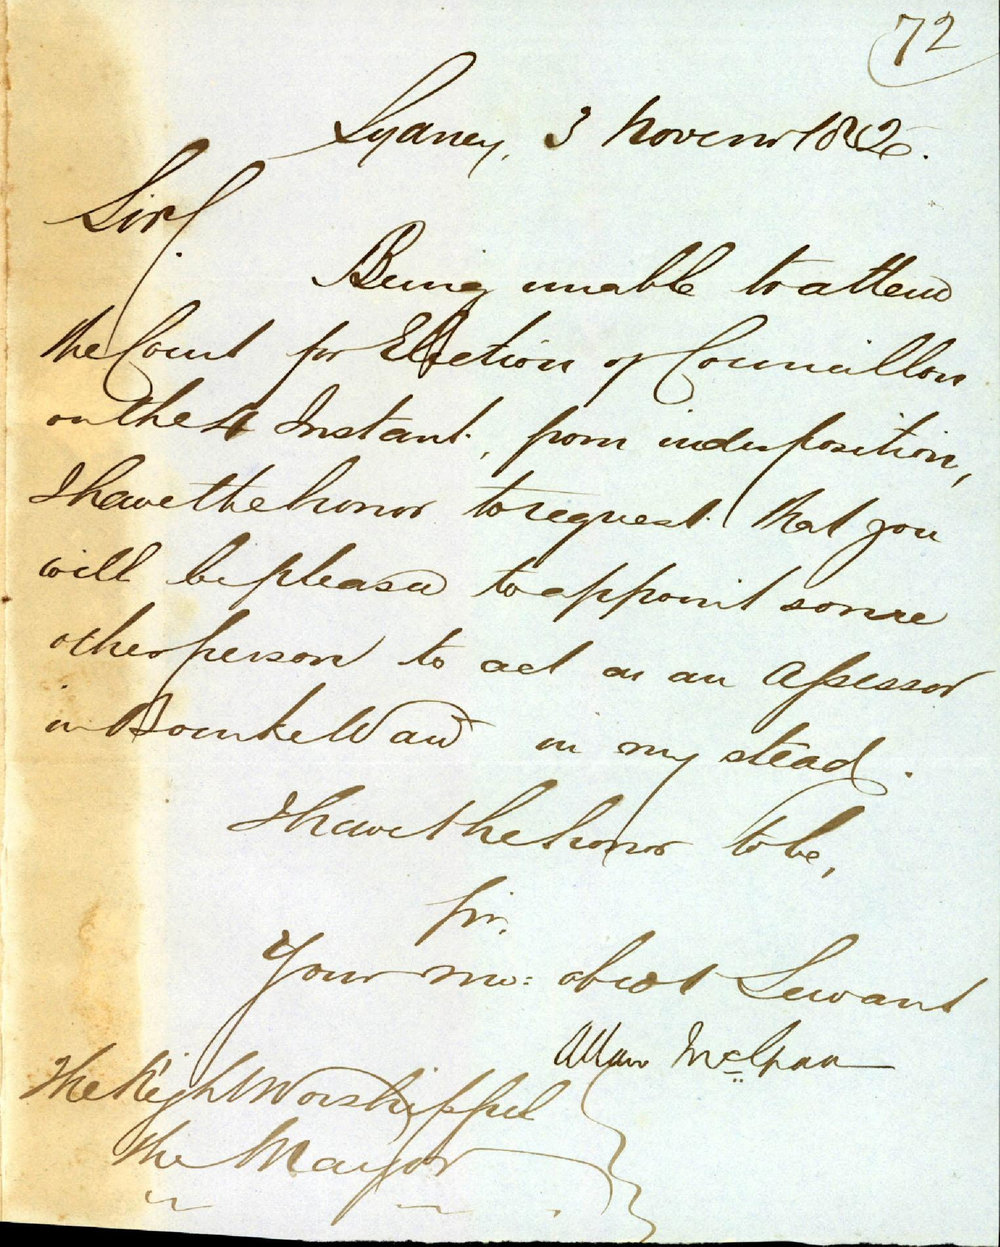 72
Sydney, 3 Novemr 1842.
Sir,
Being unable to attend
the Court for Election of Councillors
on the 4 Instant, from indisposition,
I have the honor to request that you
will be pleased to appoint some
other person to act as an Assessor
in Bourke Ward in my stead.
I have the honor to be,
Sir,
Your mo: obedt Servant
Allan
The Right Worshipful
the Mayor